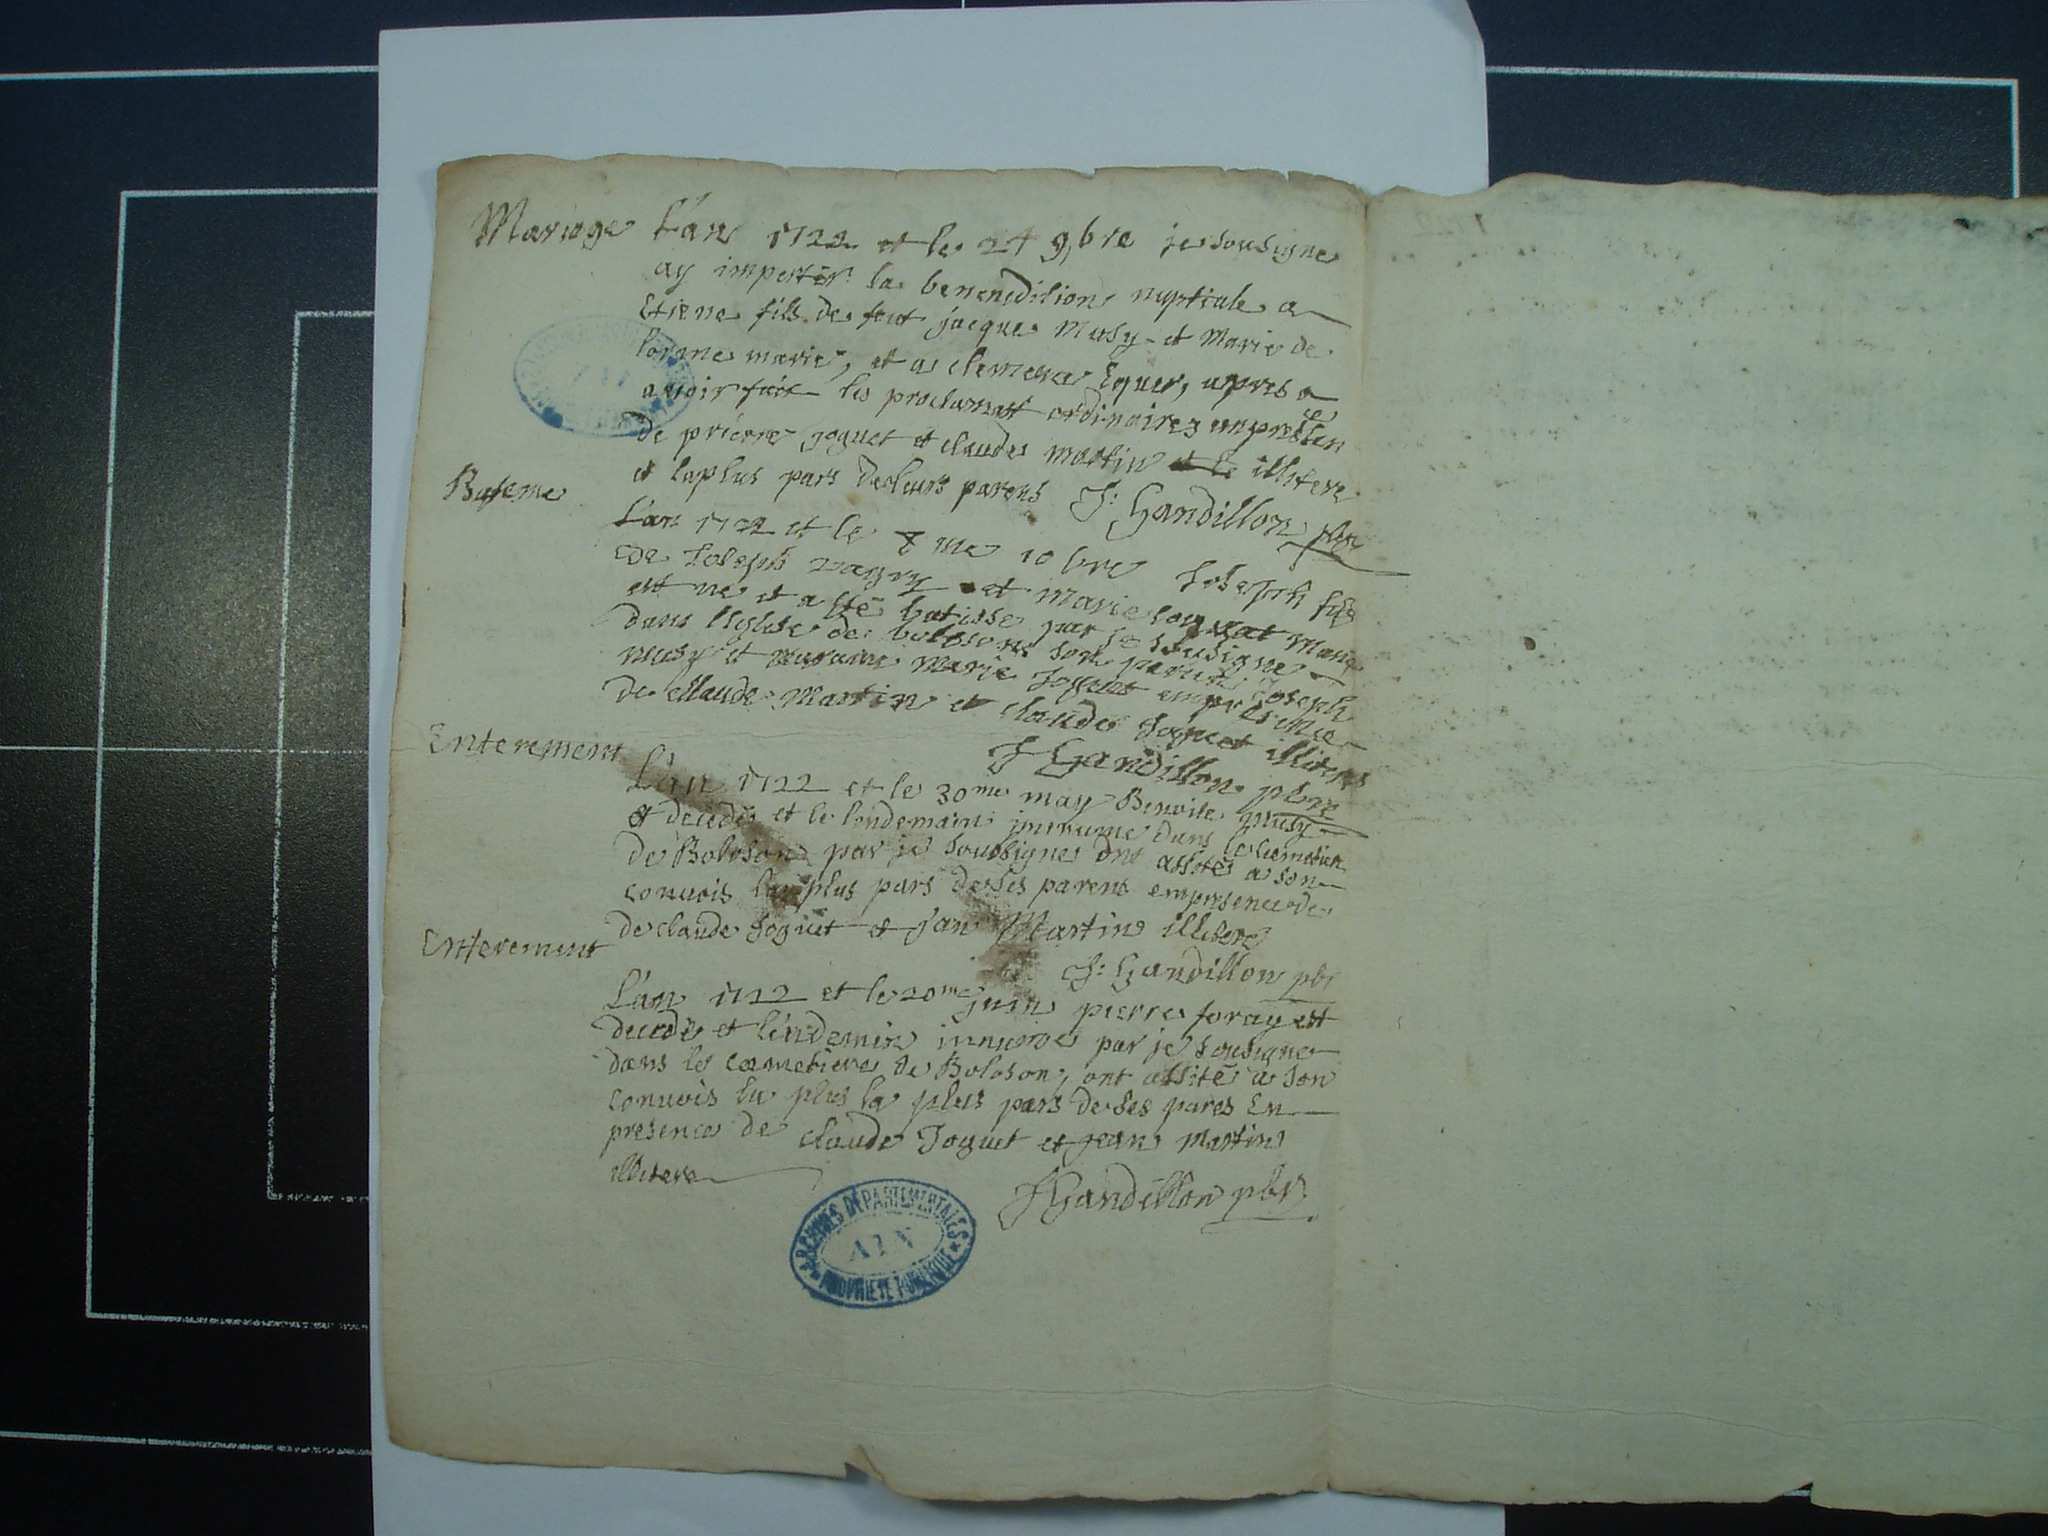 Mariage L'an 1722 et le 24 9bre je sousigne
ay imperti la benenedition nuptiale a
Etiene fils de feut jacque Musy et Marie de
lorme mariè, et a clemence Equer, apres
avoir fait les proclamat ordinaires enpresen
de prierre joguet et claude martin et le illitere
et laplus pars deleurs parens J: Gandillon pbr
Bateme
L'an 1722 et le 8 me 10 bre Joseph fils
de Joseph et marie
est ne et a etè batisse par je sousigne
dans l'eglise de boloson son parin Joseph
musy et maraine Marie Joguet enpresence
de claude Martin et claude Joguet illiteres
J Gandillon pbre
Enterement
L'an 1722 et le 30me may Benoite Musy
et decedée et le londemain innume dans le cemetiere
de Boloson par je soussigne ont assités a son
convois la plus pars deses parent empresencede
de claude Joguet et Jan Martin illitere
J: Gandillon pbr
Enterement
L'an 1722 et le 20me juin pierre foray est
decedè et lendemin innume par je sousigne
dans le cemetiere de Boloson, ont assité a son
convois la plus la plus pars de ses pares en
presence de claude Joguet et jean Martin
illitere
J Gandillon pbr
ARCHIVES DÉPARTEMENTALES
AIN
PROPRIÉTÉ PUBLIQUE